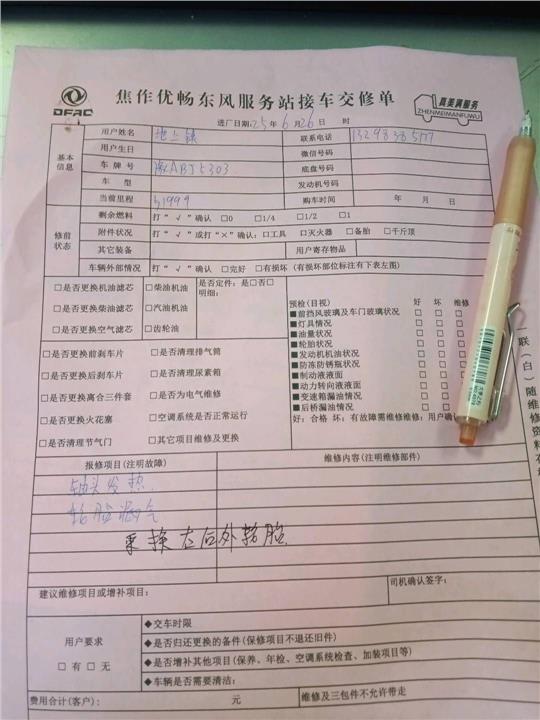 DFAC
焦作优畅东风服务站接车交修单
真美满服务
ZHENMEIMANFUWU
进厂日期:25年6月26日 时
基本信息
用户姓名
联系电话
用户生日
微信号码
车牌号
底盘号码
车型
发动机号码
当前里程 31999
购车时间 年 月 日
修前状态
剩余燃料 打“√”确认 □0 □1/4 □1/2 □1
附件状况 打“√”或打“×”确认:□工具 □灭火器 □备胎 □千斤顶
其它装备
用户寄存物品
车辆外部情况 打“√”确认 □完好 □有损坏(有损坏部位标注有下表左图)
□是否更换机油滤芯 □柴油机油
□是否更换柴油滤芯 □汽油机油
□是否更换空气滤芯 □齿轮油
是否定件:是□否□
明细:
□是否更换前刹车片 □是否清理排气筒
□是否更换后刹车片 □是否清理尿素箱
□是否更换离合三件套 □是否为电气维修
□是否更换火花塞 □空调系统是否正常运行
□是否清理节气门 □其它项目维修及更换
预检(目视) 好 坏 维修
■前挡风玻璃及车门玻璃状况 □ □
■灯具情况 □ □
■油量状况 □ □
■轮胎状况 □ □
■发动机机油状况 □ □
■防冻防锈瓶状况 □ □
■制动液液面 □ □
■动力转向液液面 □ □
■变速箱漏油情况 □ □
■后桥漏油情况 □ □
好:合格 坏:有故障需维修维修:用户确认
一联(白)随维修资料存
报修项目(注明故障)
维修内容(注明维修部件)
轴头发热
轮胎漏气
更换左后外轮胎
建议维修项目或增补项目:
司机确认签字:
用户要求
□有 □无
◆交车时限
◆是否归还更换的备件(保修项目不退还旧件)
◆是否增补其他项目(保养、年检、空调系统检查、加装项目等)
◆车辆是否需要清洁:
费用合计(客户): 元
维修及三包件不允许带走